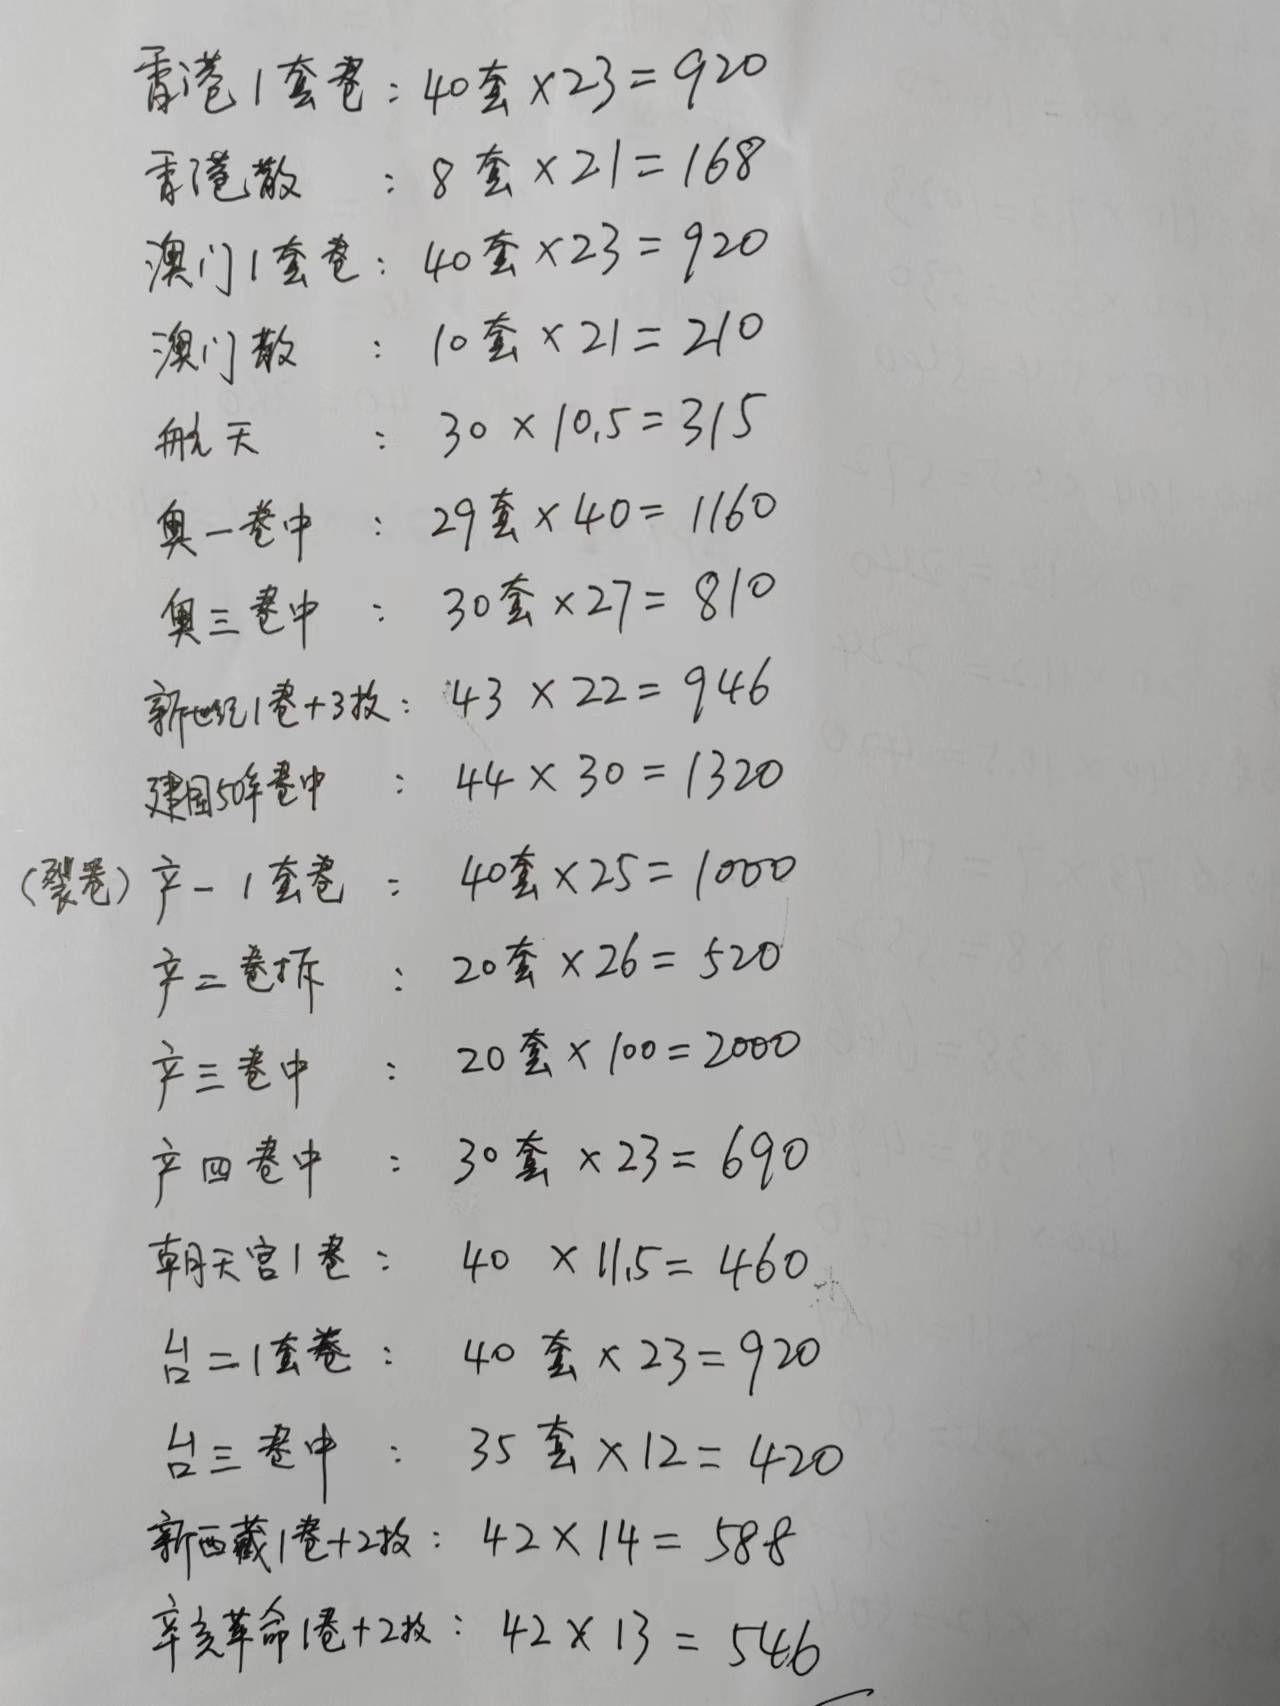 香港1套卷：40套×23=920
香港散：8套×21=168
澳门1套卷：40套×23=920
澳门散：10套×21=210
航天：30×10.5=315
奥一卷中：29套×40=1160
奥三卷中：30套×27=810
新世纪1卷+3枚：43×22=946
建国50年卷中：44×30=1320
（裂卷）产一1套卷：40套×25=1000
产二卷拆：20套×26=520
产三卷中：20套×100=2000
产四卷中：30套×23=690
朝天宫1卷：40×11.5=460
台二1套卷：40套×23=920
台三卷中：35套×12=420
新西藏1卷+2枚：42×14=588
辛亥革命1卷+2枚：42×13=546